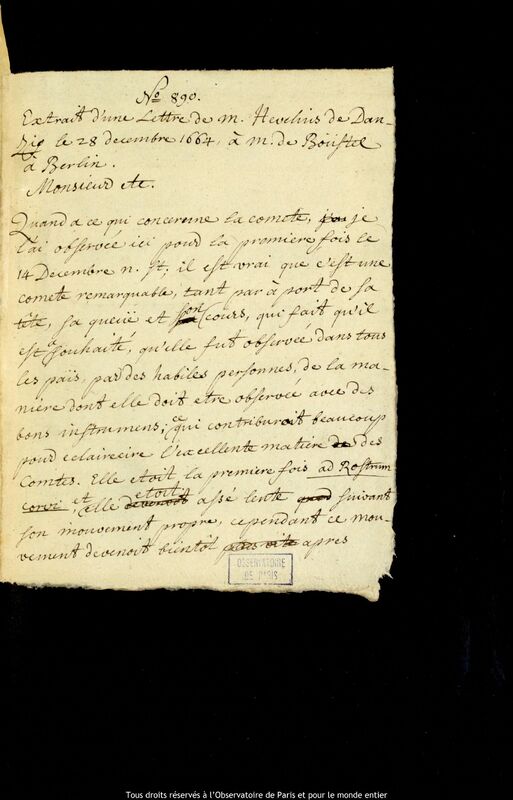 No 890.
Extrait d'une Lettre de m. Hevelius de Dan-
zig le 28 decembre 1664, à m. de Böüstel
à Berlin.
Monsieur etc.
Quand a ce qui concerne la comete, j'ai je
l'ai observée ici pour la premiere fois le
14 Decembre n. St, il est vrai que c'est une
comete remarquable, tant par à port de sa
tête, sa queüe et son cours, qui fait qu'il
est à souhaité, qu'elle fut observée dans tous
les païs, par des habiles personnes, de la ma-
niere dont elle doit etre observée avec des
bons instrumens; ce qui contriburoit beaucoup
pour eclaircire l'excellente matiere de des
Comtes. Elle etoit, la premiere fois ad Rostrum
corvi et elle devenoit etoit assé lente quad suivant
son mouvement propre, cependant ce mou-
vement devenoit bientôt plus vite apres
OBSERVATOIRE
DE PARIS
Tous droits réservés à l'Observatoire de Paris et pour le monde entier